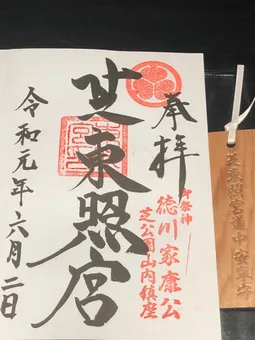 奉拝
御祭神
徳川家康公
芝公園山内鎮座
芝東照宮
令和元年六月二日
芝東照宮道中安全守